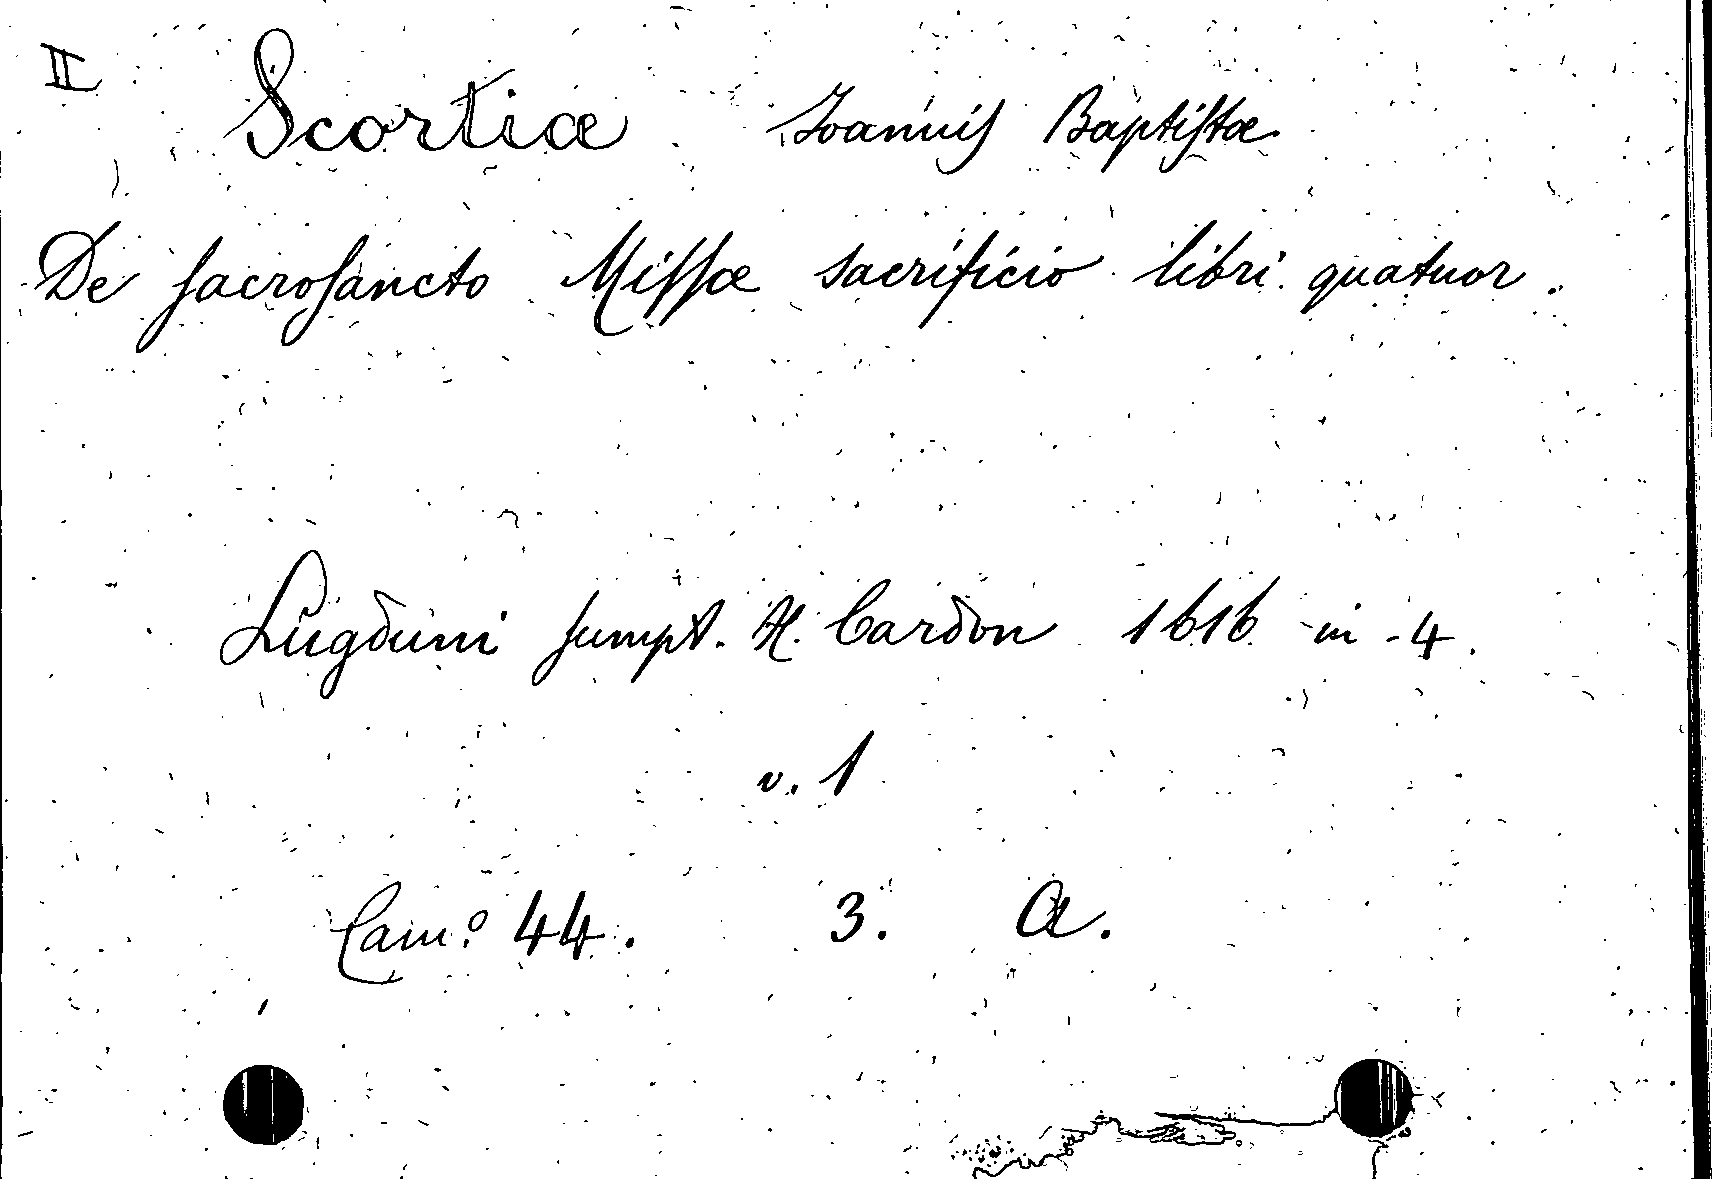 II Scortiæ Joannis Baptistæ
De sacrosancto Missæ sacrificio libri quatuor.
Lugduni sumpt. H. Cardon 1616 in-4.
v. 1
Cam.º 44. 3. A.